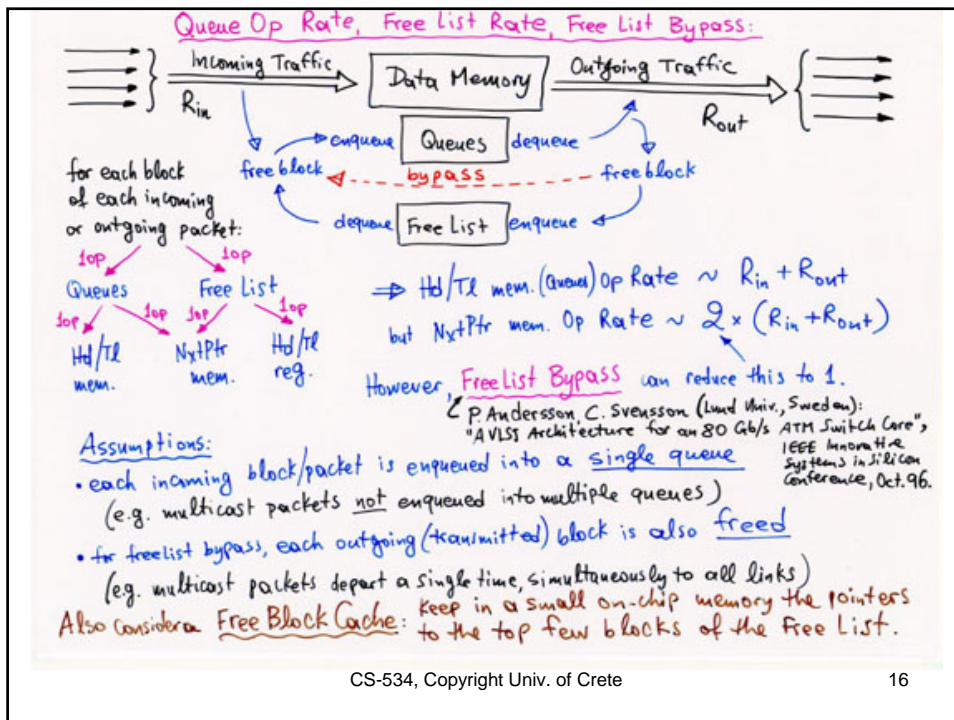 Queue Op Rate, Free List Rate, Free List Bypass:
Incoming Traffic
Rin
Data Memory
Outgoing Traffic
Rout
enqueue
Queues
dequeue
free block
bypass
free block
dequeue
Free List
enqueue
for each block
of each incoming
or outgoing packet:
1op 1op
Queues Free List
1op 1op 1op 1op
Hd/Tl mem.
NxtPtr mem.
Hd/Tl reg.
⇒ Hd/Tl mem. (Queues) Op Rate ~ Rin + Rout
but NxtPtr mem. Op Rate ~ 2 × (Rin + Rout)
However, FreeList Bypass can reduce this to 1.
P. Andersson, C. Svensson (Lund Univ., Sweden):
"A VLSI Architecture for an 80 Gb/s ATM Switch Core",
IEEE Innovative
Systems in Silicon
Conference, Oct. 96.
Assumptions:
• each incoming block/packet is enqueued into a single queue
(e.g. multicast packets not enqueued into multiple queues)
• for freelist bypass, each outgoing (transmitted) block is also freed
(e.g. multicast packets depart a single time, simultaneously to all links)
Also consider a Free Block Cache: keep in a small on-chip memory the pointers
to the top few blocks of the Free List.
CS-534, Copyright Univ. of Crete
16